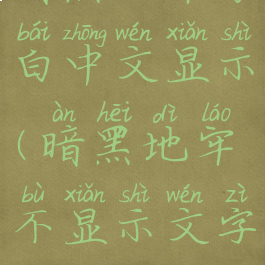 bái zhōng wén xiǎn shì
白中文显示
àn hēi dì láo
(暗黑地牢
bù xiǎn shì wén zì
不显示文字